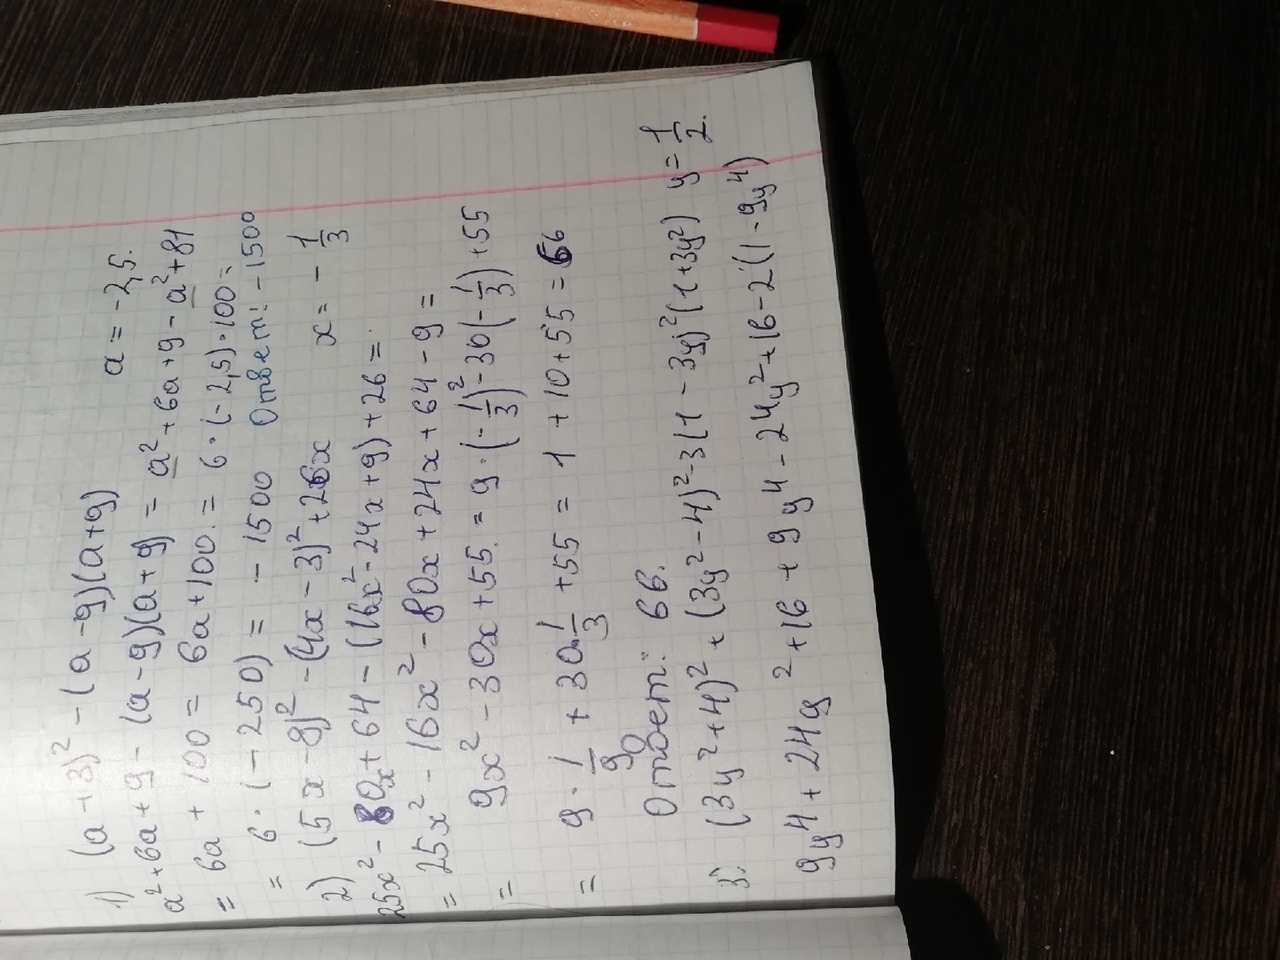 1) (a+3)² - (a-9)(a+9) a = -2,5.
a²+6a+9 - (a-9)(a+9) = a²+6a+9-a²+81
= 6a + 100 = 6a+100. = 6·(-2,5)·100=
= 6·(-250) = -1500 Ответ: -1500
2) (5x-8)² - (4x-3)² + 26x x = -1/3
25x² - 80x + 64 - (16x² - 24x + 9) + 26 =
= 25x² - 16x² - 80x + 24x + 64 - 9 =
= 9x² - 30x + 55. = 9·(-1/3)² - 30(-1/3) + 55
= 9·1/9 + 30·1/3 + 55 = 1 + 10 + 55 = 66
Ответ: 66.
3. (3y²+4)² + (3y²-4)² - 3(1-3y)²(1+3y²) y = 1/2.
9y⁴ + 24y² + 16 + 9y⁴ - 24y² + 16 - 2(1-9y⁴)